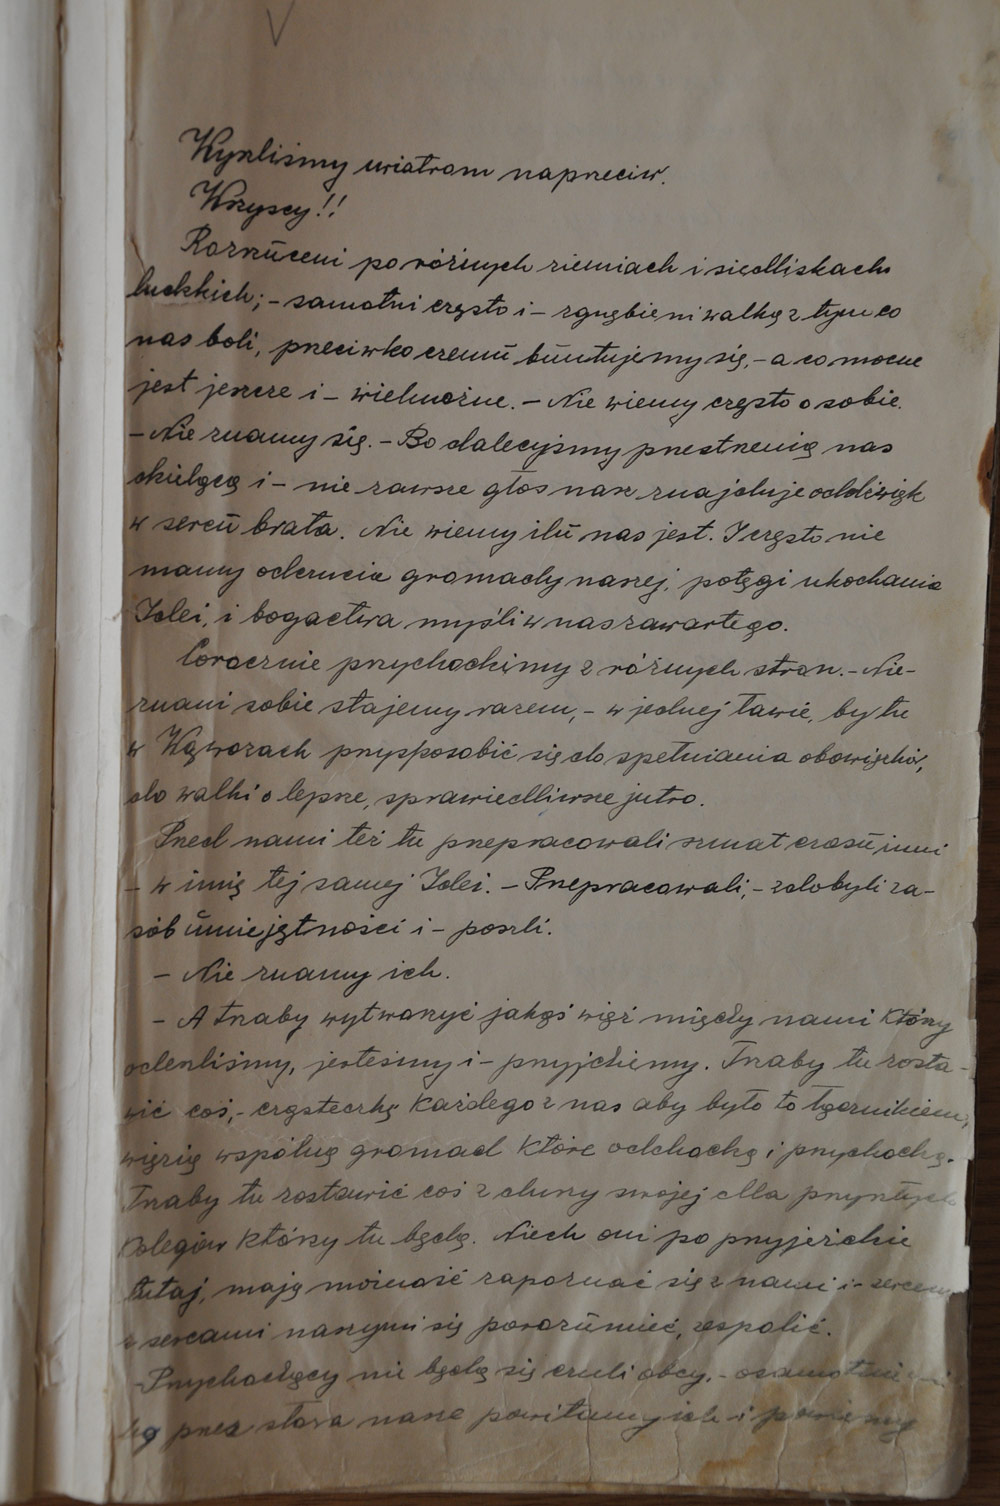 Wyszliśmy wiatrom naprzeciw.
Wszyscy!!
Rozrzuceni po różnych ziemiach i siedliskach
ludzkich; – samotni często i – zgnębieni walką z tym co
nas boli, przeciwko czemu buntujemy się, – a co mocne
jest jeszcze i – wielmożne. – Nie wiemy często o sobie.
– Nie znamy się. – Bo dalecyśmy przestrzenią nas
dzielącą i – nie zawsze głos nasz znajduje oddźwięk
w sercu brata. Nie wiemy ilu nas jest. I często nie
mamy odczucia gromady naszej, potęgi ukochania
Idei, i bogactwa myśli w nas zawartego.
Corocznie przychodzimy z różnych stron. – Nie-
znani sobie stajemy razem, – w jednej ławie, by tu
w Kąworach przysposobić się do spełniania obowiązków,
do walki o lepsze, sprawiedliwsze jutro.
Przed nami też tu przepracowali szmat czasu inni
– w imię tej samej Idei. – Przepracowali, – zdobyli za-
sób umiejętności i – poszli.
– Nie znamy ich.
– A trzaby wytworzyć jakąś więź między nami którzy
odeszliśmy, jesteśmy i – przyjdziemy. Trzaby tu zosta-
wić coś, – cząsteczkę każdego z nas aby było to łącznikiem,
więzią wspólną gromad które odchodzą i przychodzą.
Trzaby tu zostawić coś z duszy swojej dla przyszłych
Kolegów którzy tu będą. Niech oni po przyjeździe
tutaj, mają możność zapoznać się z nami i – sercem
z sercami naszymi się porozumieć, zespolić.
– Przychodzący nie będą się czuli obcy, – osamotnieni
przez słowa nasze powitamy ich i powiemy